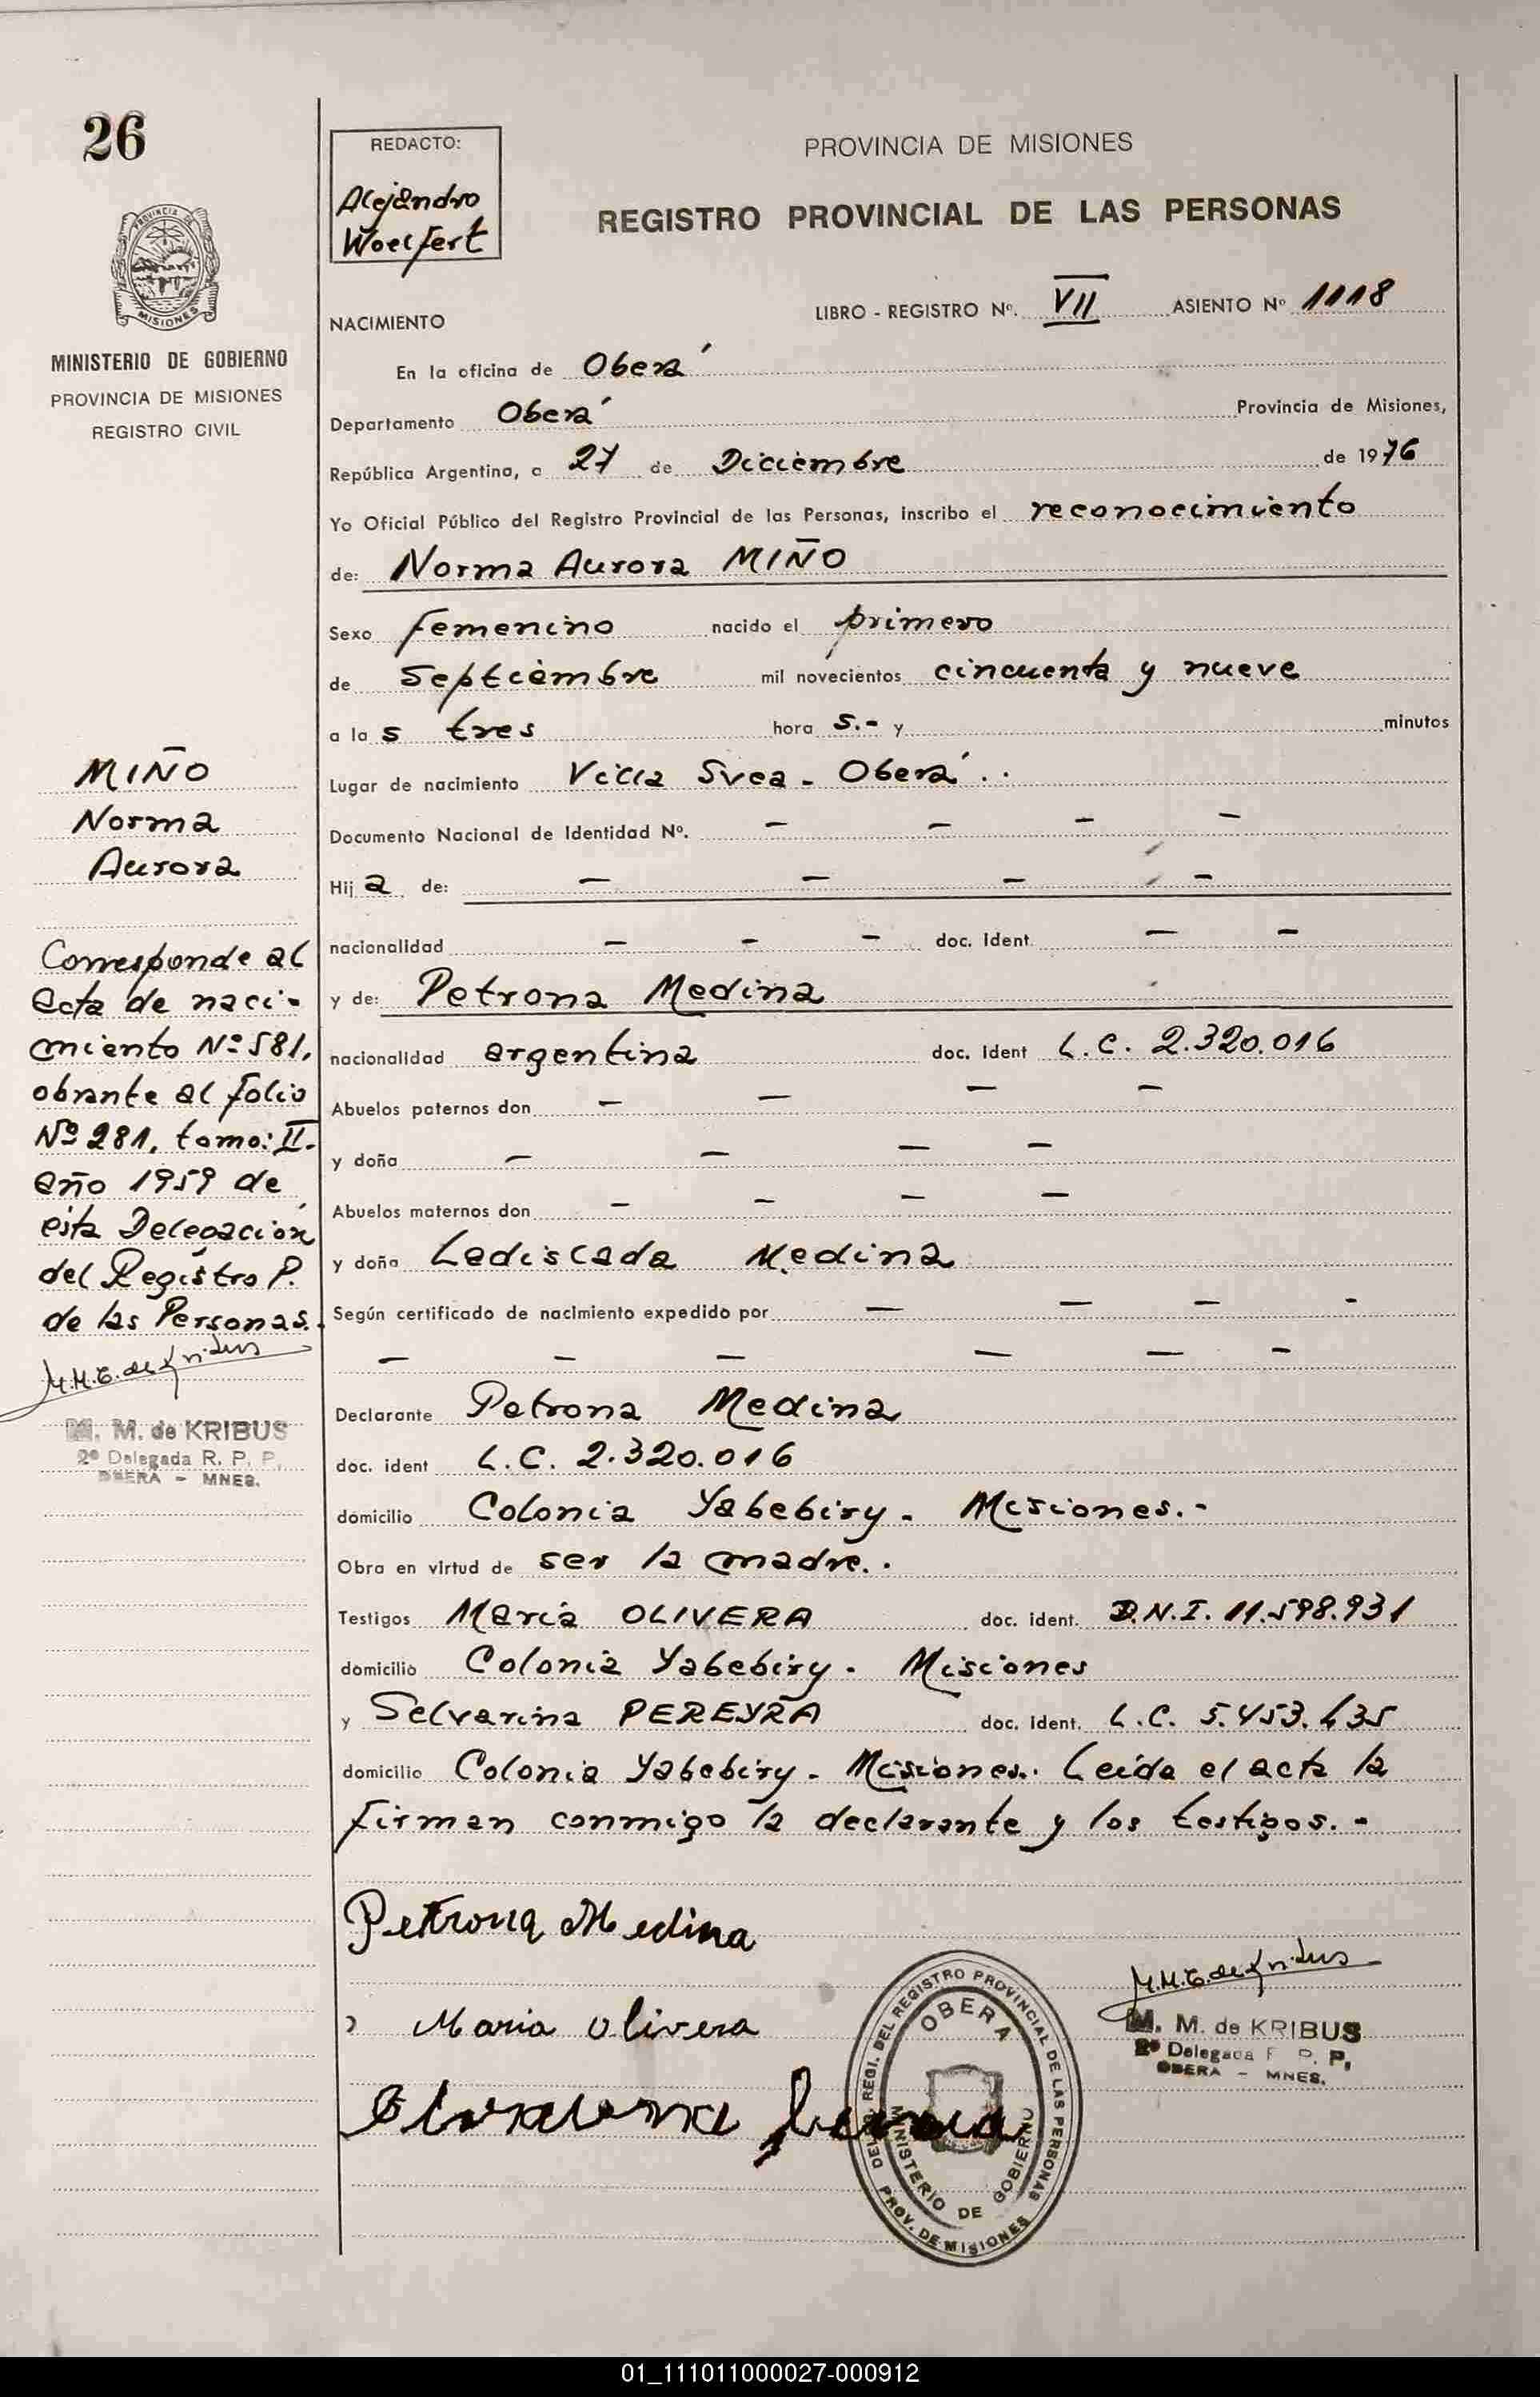 26
PROVINCIA DE
MISIONES
MINISTERIO DE GOBIERNO
PROVINCIA DE MISIONES
REGISTRO CIVIL
MIÑO
Norma
Aurora
Corresponde al
acta de naci-
miento Nº 581,
obrante al folio
Nº 281, tomo: II.
año 1959 de
esta Delegación
del Registro P.
de las Personas.
M. M. de KRIBUS
2º Delegada R. P. P.
OBERA - MNES.
REDACTO:
Alejandro
Woelfert
PROVINCIA DE MISIONES
REGISTRO PROVINCIAL DE LAS PERSONAS
NACIMIENTO LIBRO - REGISTRO Nº. VII ASIENTO Nº 1118
En la oficina de Oberá
Departamento Oberá Provincia de Misiones,
República Argentina, a 27 de Diciembre de 1976
Yo Oficial Público del Registro Provincial de las Personas, inscribo el reconocimiento
de: Norma Aurora MIÑO
Sexo femenino nacido el primero
de Septiembre mil novecientos cincuenta y nueve
a la s tres hora s.- y minutos
Lugar de nacimiento Villa Svea - Oberá..
Documento Nacional de Identidad Nº. — — — —
Hij a de: — — — —
nacionalidad — — — doc. Ident. — —
y de: Petrona Medina
nacionalidad argentina doc. Ident L.C. 2.320.016
Abuelos paternos don — — — —
y doña — — — —
Abuelos maternos don — — — —
y doña Lediscada Medina
Según certificado de nacimiento expedido por — — — -
— — — — — -
Declarante Petrona Medina
doc. ident L.C. 2.320.016
domicilio Colonia Yabebiry - Misiones.-
Obra en virtud de ser la madre..
Testigos María OLIVERA doc. ident. D.N.I. 11.598.931
domicilio Colonia Yabebiry - Misiones
y Selvarina PEREYRA doc. ident. L.C. 5.453.635
domicilio Colonia Yabebiry - Misiones. Leída el acta la
firman conmigo la declarante y los testigos.-
Petrona Medina
Maria Olivera
M. M. de KRIBUS
2º Delegada R. P. P.
OBERA - MNES.
DELEG. REGI. DEL REGISTRO PROVINCIAL DE LAS PERSONAS
OBERA
MINISTERIO DE GOBIERNO
PROV. DE MISIONES
01_111011000027-000912